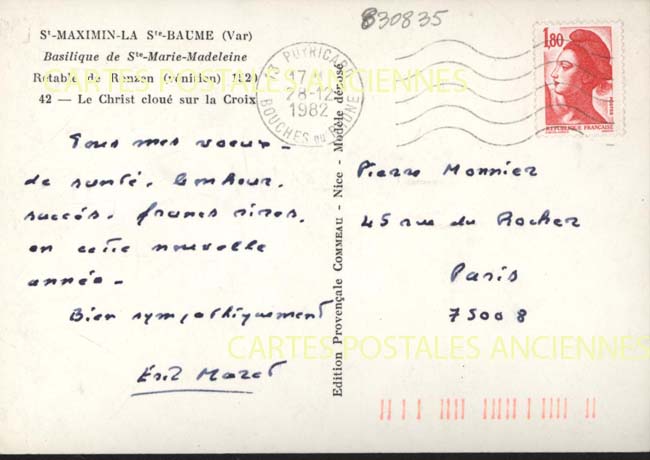 830835
St-MAXIMIN-LA Ste-BAUME (Var)
Basilique de Ste-Marie-Madeleine
Retable de Ronzen (Vénitien) 1520
42 — Le Christ cloué sur la Croix
13 PUYRICARD
17
28-12
1982
BOUCHES DU RHONE
1,80
REPUBLIQUE FRANÇAISE
CARTES POSTALES ANCIENNES
Tous mes voeux -
de santé, bonheur,
succès, francs rires,
en cette nouvelle
année -
Bien sympathiquement
Edition Provençale COMMEAU - Nice - Modèle déposé
Pierre Monnier
45 rue du Rocher
Paris
75008
CARTES POSTALES ANCIENNES